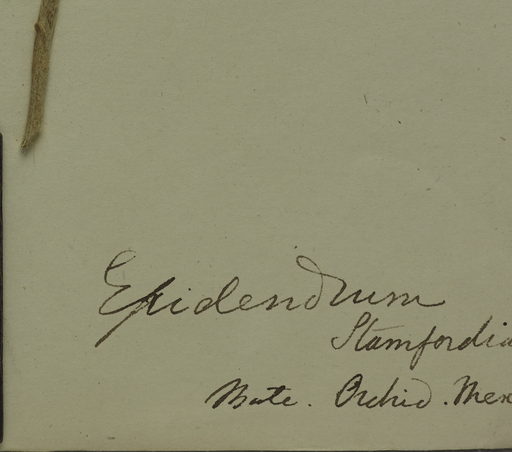 Epidendrum
Stamfordia
Bate. Orchid. Mex